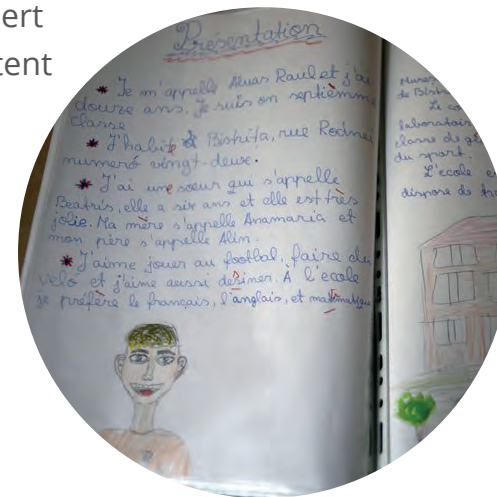 ert
tent
Présentation
* Je m'appelle Aluas Raul et j'ai
douze ans. Je suis on septièmme
classe
* J'habite à Bistrita, rue Rodnei
numeró vingt-deuse.
* J'ai une soeur qui s'appelle
Beatris, elle a six ans et elle est très
jolie. Ma mère s'appelle Anamaria et
mon père s'appelle Alin.
* J'aime jouer au footbal, faire du
velo et j'aime aussi desiner. À l'école
je préfère le français, l'anglais, et matématique
de Bistr
Le co
laboratoir
classe de g
du sport.
L'école e
dispose de